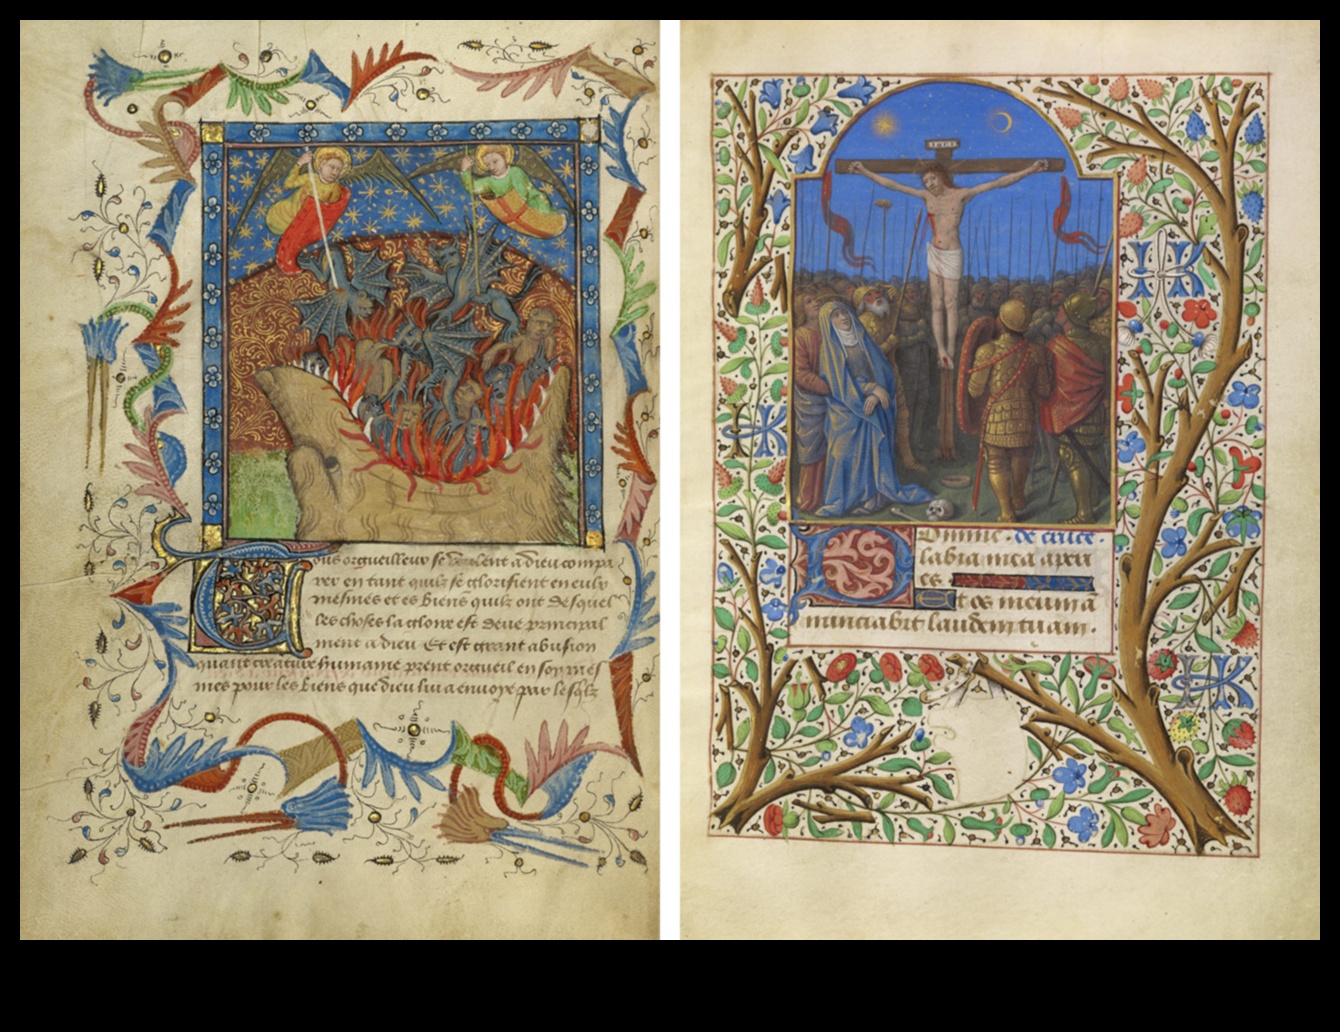 Les orgueilleux se veulent a dieu compa
rer en tant quilz se glorifient en eulx
mesmes et es biens quilz ont desquel
les choses la gloire est deue principal
ment a dieu Et est grant abusion
quant creature humaine prent orgueil en soy mes
mes pour les biens que dieu lui a envoye par le filz
INRI
Domine · de cruce
labia mea aperi
es
Et os meum a
nunciabit laudem tuam ·